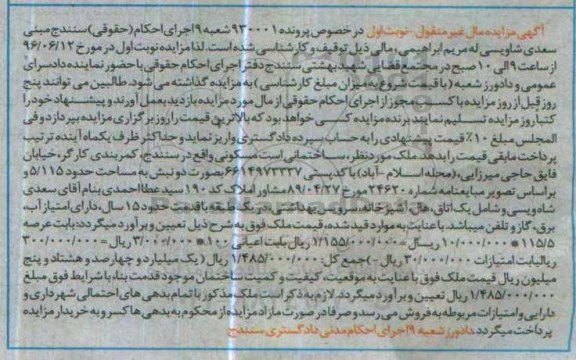 آگهی مزایده مال غیر منقول -نوبت اول در خصوص پرونده ۹۳۰۰۰۱ شعبه ۹ اجرای احکام (حقوقی) سنندج مبنی
سعدی شاویسی له مریم ابراهیمی، مالی ذیل توقیف و کارشناسی شده است. لذا مزایده نوبت اول در مورخ ۹۶/۰۶/۱۲
از ساعت ۹ الی ۱۰ صبح در مجتمع قضایی شهید بهشتی سنندج دفتر اجرای احکام حقوقی با حضور نماینده دادسرای
عمومی و دادورز شعبه (با قیمت شروع به میزان مبلغ کارشناسی) به مزایده گذاشته می شود. طالبین می توانند پنج
روز قبل از روز مزایده با کسب مجوز از اجرای احکام حقوقی از مال مورد مزایده بازدید بعمل آورند و پیشنهاد خود را
کتبا روز مزایده تسلیم نمایند برنده مزایده کسی خواهد بود که بالاترین قیمت را روز برگزاری مزایده بپردازد و فی
المجلس مبلغ ۱۰٪ قیمت پیشنهادی را به حساب سپرده دادگستری واریز نماید و حداکثر ظرف یکماه آینده ترتیب
پرداخت مابقی قیمت را بدهد. ملک مورد نظر، ساختمانی است مسکونی واقع در سنندج، کمربندی کارگر، خیابان
فایق حاجی میرزایی، (محله اسلام -آباد) با کدپستی ۶۶۱۴۹۷۳۳۳۷ بصورت دونبش به مساحت حدود ۱۱۵/۵ و
بر اساس تصویر مبایعنامه شماره ۲۴۶۲۰ مورخ ۸۹/۰۴/۲۷ مشاور املاک کد ۱۹۰ سید عطا احمدی بنام آقای سعدی
شاه ویسی و شامل یک اتاق، هال، آشپزخانه، سرویس بهداشتی، در یک طبقه با قدمت حدود ۱۵ سال، دارای امتیاز آب،
برق، گاز و تلفن میباشد. با عنایت به موارد قید شده، قیمت ملک فوق به شرح ذیل تعیین و برآورد میگردد: بابت عرصه
۱۱۵/۵ * ۱۰/۰۰۰/۰۰۰ ریال = ۱/۱۵۵/۰۰۰/۰۰۰ ریال بابت اعیانی ۱۰۰ * ۳/۰۰۰/۰۰۰ ریال = ۳۰۰/۰۰۰/۰۰۰
ریال بابت امتیازات ۳۰/۰۰۰/۰۰۰ ریال -) جمع کل: ۱/۴۸۵/۰۰۰/۰۰۰ ریال (یک میلیارد و چهارصد و هشتاد و پنج
میلیون ریال قیمت ملک فوق با عنایت به موقعیت، کیفیت و کمیت ساختمان موجود قدمت بنا، با شرایط فوق مبلغ
۱/۴۸۵/۰۰۰/۰۰۰ ریال تعیین و برآورد میگردد. لازم به ذکر است ملک مذکور با تمام بدهی های احتمالی شهرداری و
دارایی و امتیازات مربوطه به فروش می رسد و صرفا در صورت مازاد مزایده از محکوم به بدهی ها کسر و به خریدار مزایده
پرداخت میگردد. دادورز شعبه ۹ اجرای احکام مدنی دادگستری سنندج